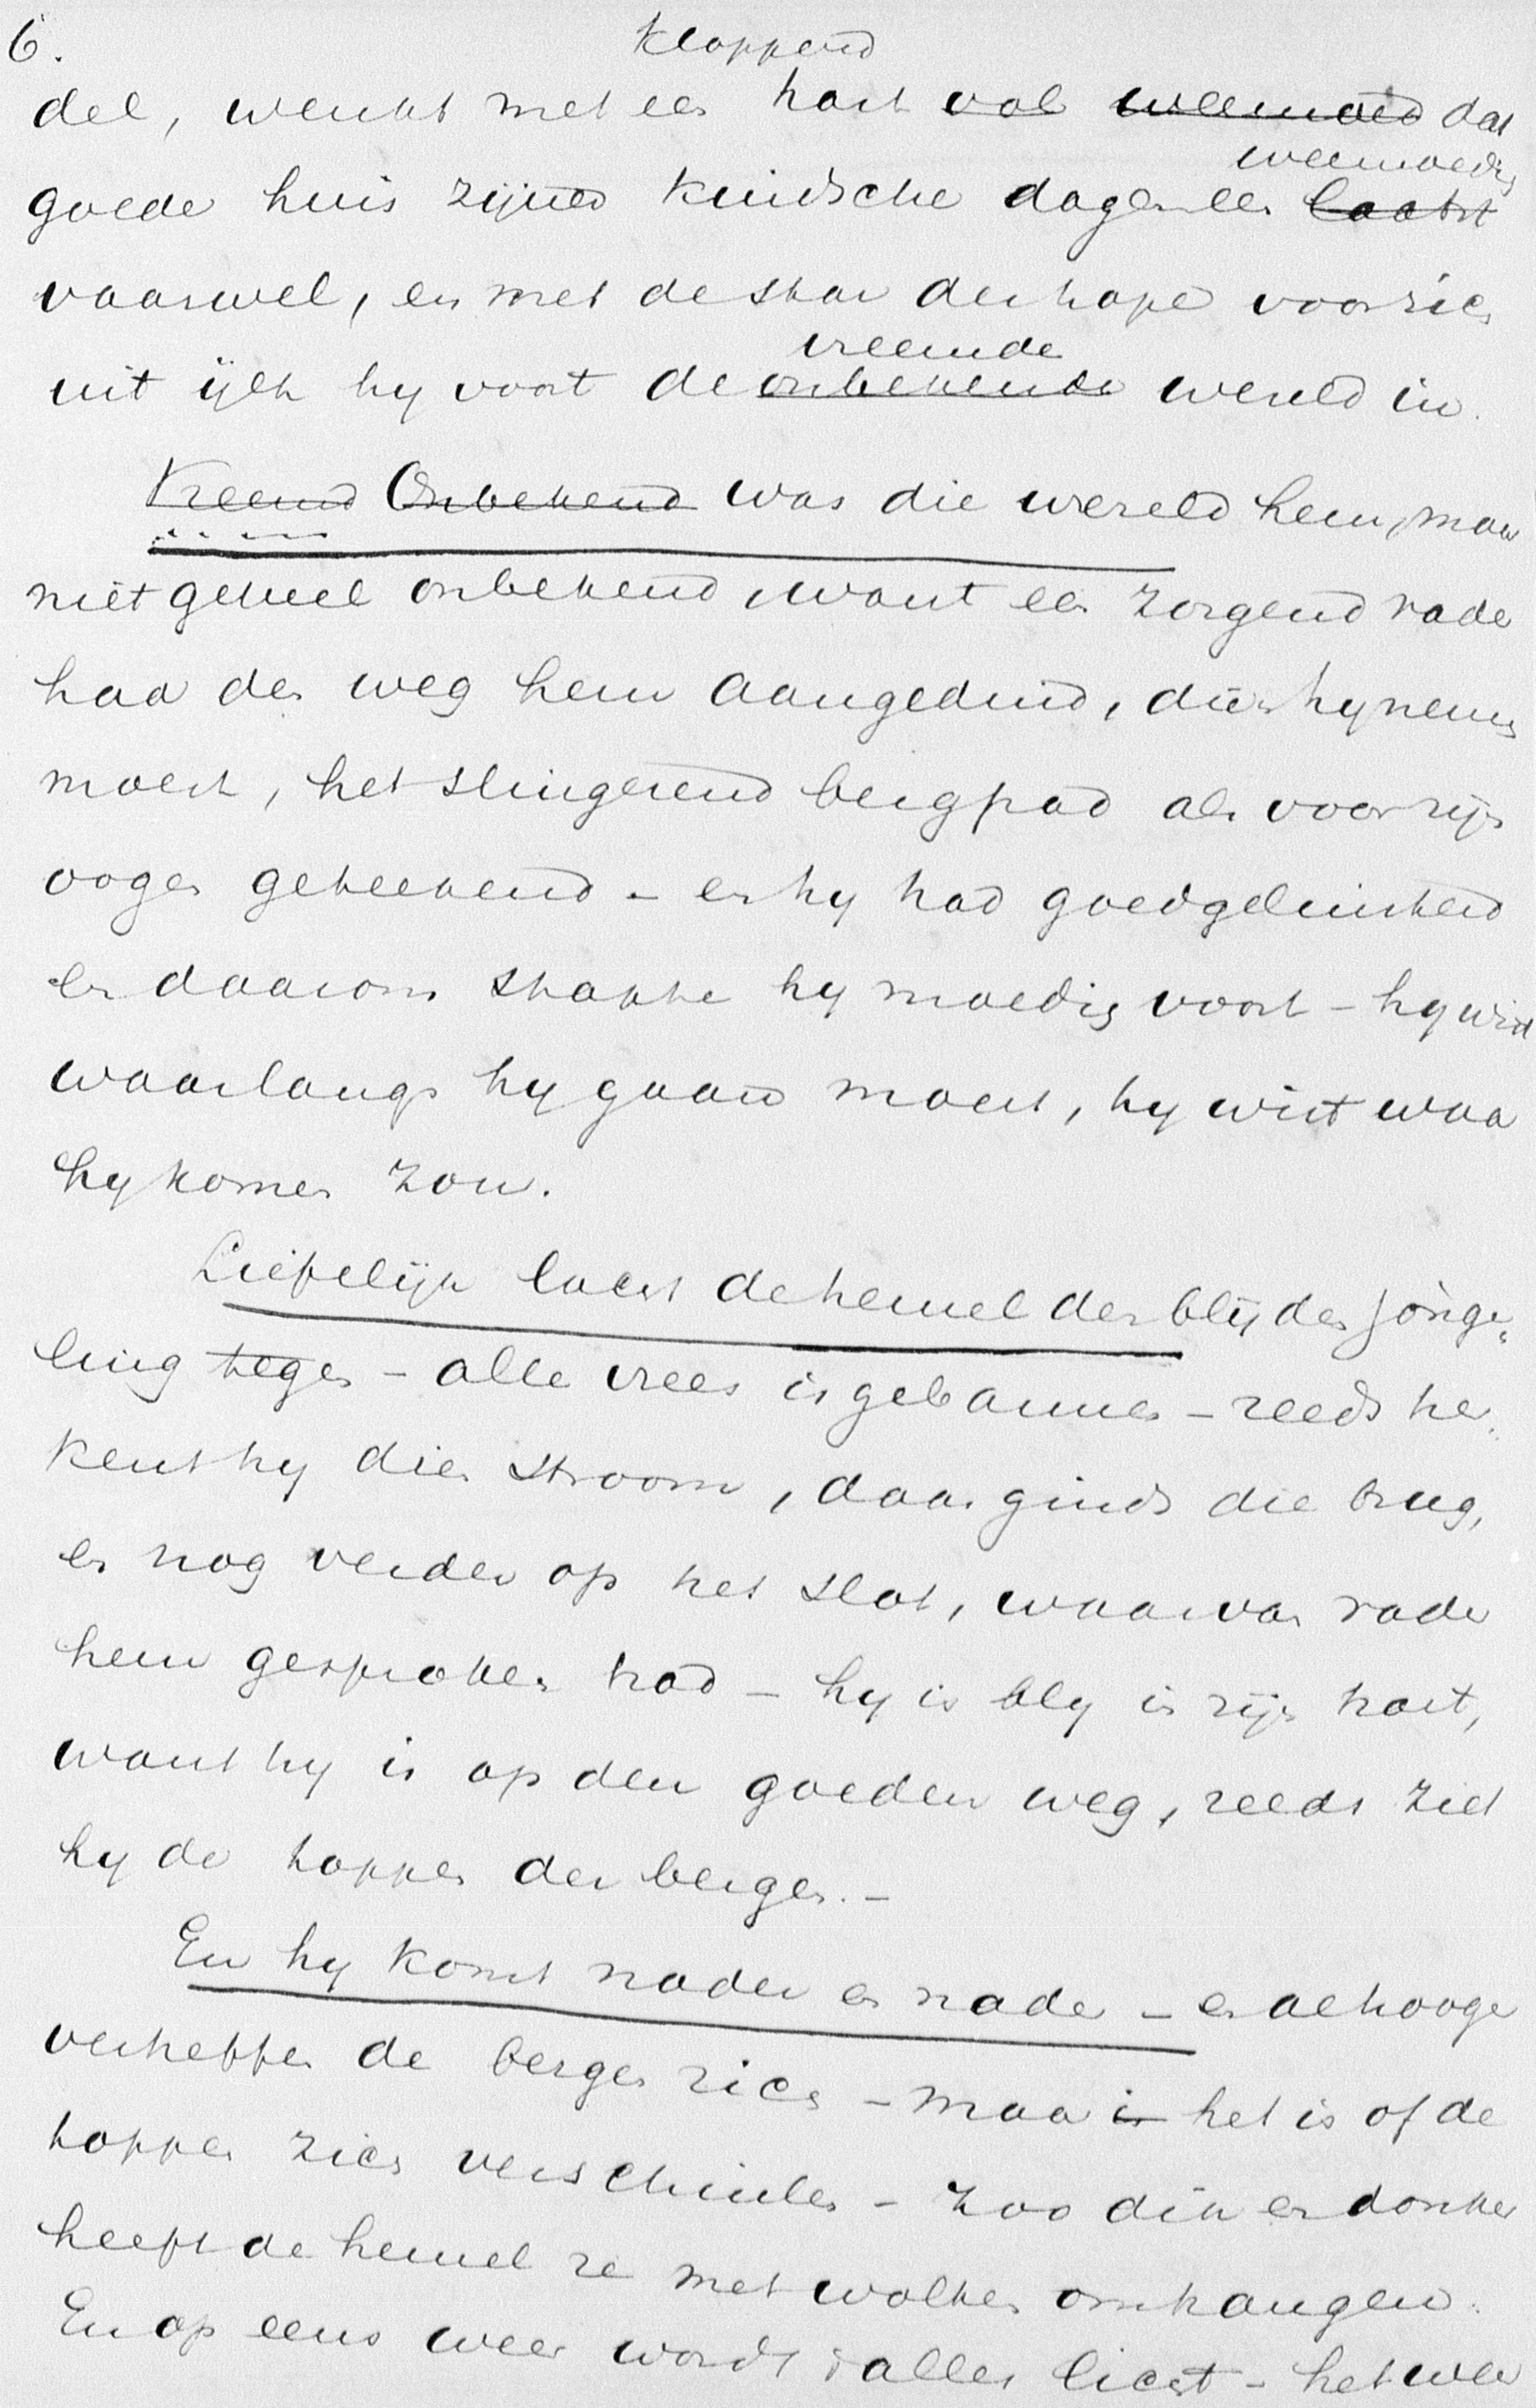 6.
kloppend
del, wenkt met een hart vol weemoed dat
weemoedig
goede huis zijner kindsche dagen een laatst
vaarwel, en met de star der hope voor zich
vreemde
uit ijlt hy voort de onbekende wereld in.
Vreemd Onbekend was die wereld hem, maar
niet geheel onbekend, want een zorgend vader
had den weg hem aangeduid, dien hy nemen
moest, het slingerend bergpad als voor zijn
oogen geteekend - en hy had goed geluisterd
en daarom stapte hy moedig voort - hy wist
waarlangs hy gaan moest, hy wist waar
hy komen zou.
Liefelijk lacht de hemel den blijden jonge-
ling tegen - alle vrees is gebannen - reeds her-
kent hy dien stroom, daar ginds die brug,
en nog verder op het slot, waarvan vader
hem gesproken had - hy is bly in zijn hart,
want hy is op den goeden weg, reeds ziet
hy de toppen der bergen. -
En hy komt nader en nader - en al hooger
verheffen de bergen zich - maar is het is of de
toppen zich verschuilen - zoo dik en donker
heeft de hemel ze met wolken omhangen.
En op eens weer wordt alles licht - het weer